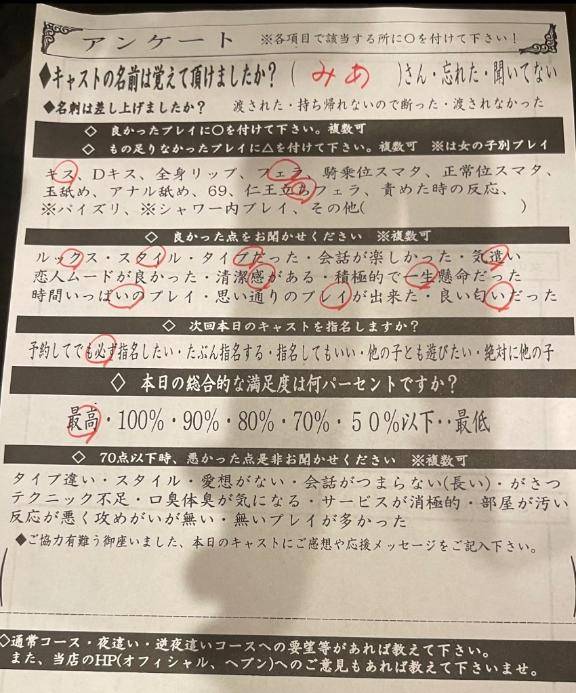 アンケート ※各項目で該当する所に〇を付けて下さい!
◆キャストの名前は覚えて頂けましたか?(みあ)さん・忘れた・聞いてない
◆名刺は差し上げましたか? 渡された・持ち帰れないので断った・渡されなかった
◇ 良かったプレイに〇を付けて下さい。複数可
◇ もの足りなかったプレイに△を付けて下さい。複数可 ※は女の子別プレイ
キス、Dキス、全身リップ、フェラ、騎乗位スマタ、正常位スマタ、
玉舐め、アナル舐め、69、仁王立ちフェラ、責めた時の反応、
※パイズリ、※シャワー内プレイ、その他( )
◇ 良かった点をお聞かせください ※複数可
ルックス・スタイル・タイプだった・会話が楽しかった・気遣い
恋人ムードが良かった・清潔感がある・積極的で一生懸命だった
時間いっぱいのプレイ・思い通りのプレイが出来た・良い匂いだった
◇ 次回本日のキャストを指名しますか?
予約してでも必ず指名したい・たぶん指名する・指名してもいい・他の子とも遊びたい・絶対に他の子
◇ 本日の総合的な満足度は何パーセントですか?
最高・100%・90%・80%・70%・50%以下・・最低
◇ 70点以下時、悪かった点是非お聞かせください ※複数可
タイプ違い・スタイル・愛想がない・会話がつまらない(長い)・がさつ
テクニック不足・口臭体臭が気になる・サービスが消極的・部屋が汚い
反応が悪く攻めがいが無い・無いプレイが多かった
◆ご協力有難う御座いました、本日のキャストにご感想や応援メッセージをご記入下さい。
◇通常コース・夜這い・逆夜這いコースへの要望等があれば教えて下さい。
また、当店のHP(オフィシャル、ヘブン)へのご意見もあれば教えて下さいませ。